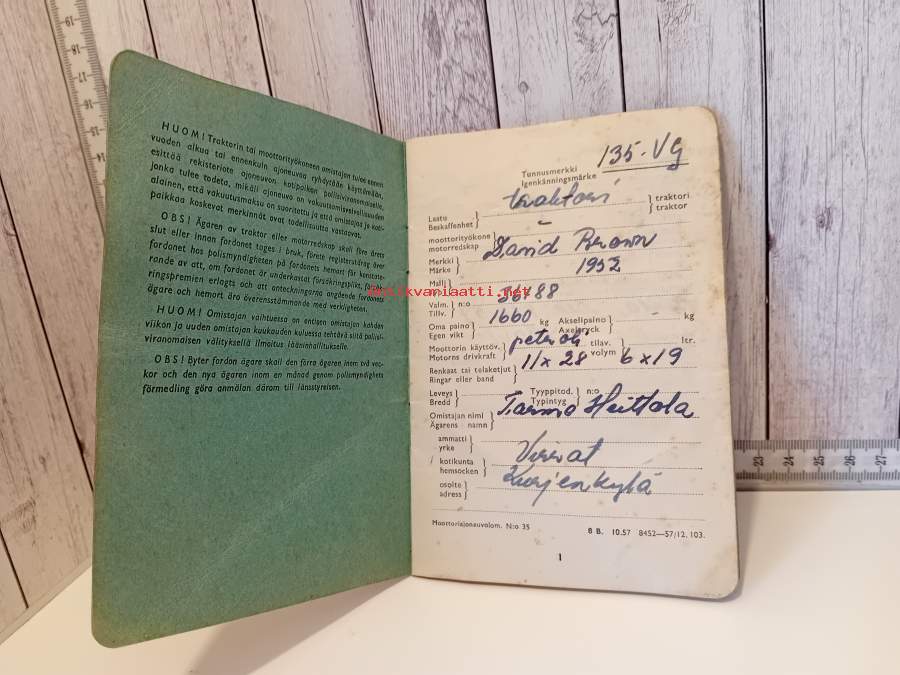 HUOM! Traktorin tai moottorityökoneen omistajan tulee ennen
vuoden alkua tai ennenkuin ajoneuvoa ryhdytään käyttämään,
esittää rekisteriote ajoneuvon kotipaikan poliisiviranomaiselle,
jonka tulee todeta, mikäli ajoneuvo on vakuutusvelvollisuuden
alainen, että vakuutusmaksu on suoritettu ja että omistajaa ja koti-
paikkaa koskevat merkinnät ovat todellisuutta vastaavat.
OBS! Ägaren av traktor eller motorredskap skall före årets
slut eller innan fordonet tages i bruk, förete registerutdrag över
fordonet hos polismyndigheten på fordonets hemort för konstate-
rande av att, om fordonet är underkastat försäkringsplikt, försäk-
ringspremien erlagts och att anteckningarna angående fordonets
ägare och hemort äro överensstämmande med verkligheten.
HUOM! Omistajan vaihtuessa on entisen omistajan kahden
viikon ja uuden omistajan kuukauden kuluessa tehtävä siitä poliisi-
viranomaisen välityksellä ilmoitus lääninhallitukselle.
OBS! Byter fordon ägare skall den förra ägaren inom två vec-
kor och den nya ägaren inom en månad genom polismyndighets
förmedling göra anmälan därom till länsstyrelsen.
Tunnusmerkki 135-VG
Igenkänningsmärke
Laatu traktori traktori
Beskaffenhet traktor
moottorityökone -
motorredskap
Merkki David Brown
Märke 1952
Malli
antikvariaatti.net
Valm. n:o 36188
Tillv.
Oma paino 1660 kg Akselipaino - kg
Egen vikt Axeltryck
Moottorin käyttöv. petroli tilav. ltr.
Motorns drivkraft volym
Renkaat tai telaketjut 11x28 6x19
Ringar eller band
Leveys Tyyppitod. n:o
Bredd Typintyg
Omistajan nimi Tarmo Heittola
Ägarens namn
ammatti
yrke
kotikunta Virrat
hemsocken
osoite Kurjenkylä
adress
Moottoriajoneuvolom. N:o 35 8 B. 10.57 8452—57/12.103.
1
19
18
17
16
15
14
23 24 25 26 27